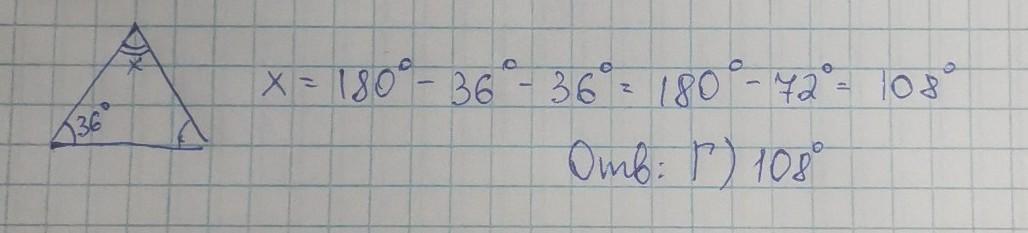 x
36°
x = 180° - 36° - 36° = 180° - 72° = 108°
Отв: Г) 108°